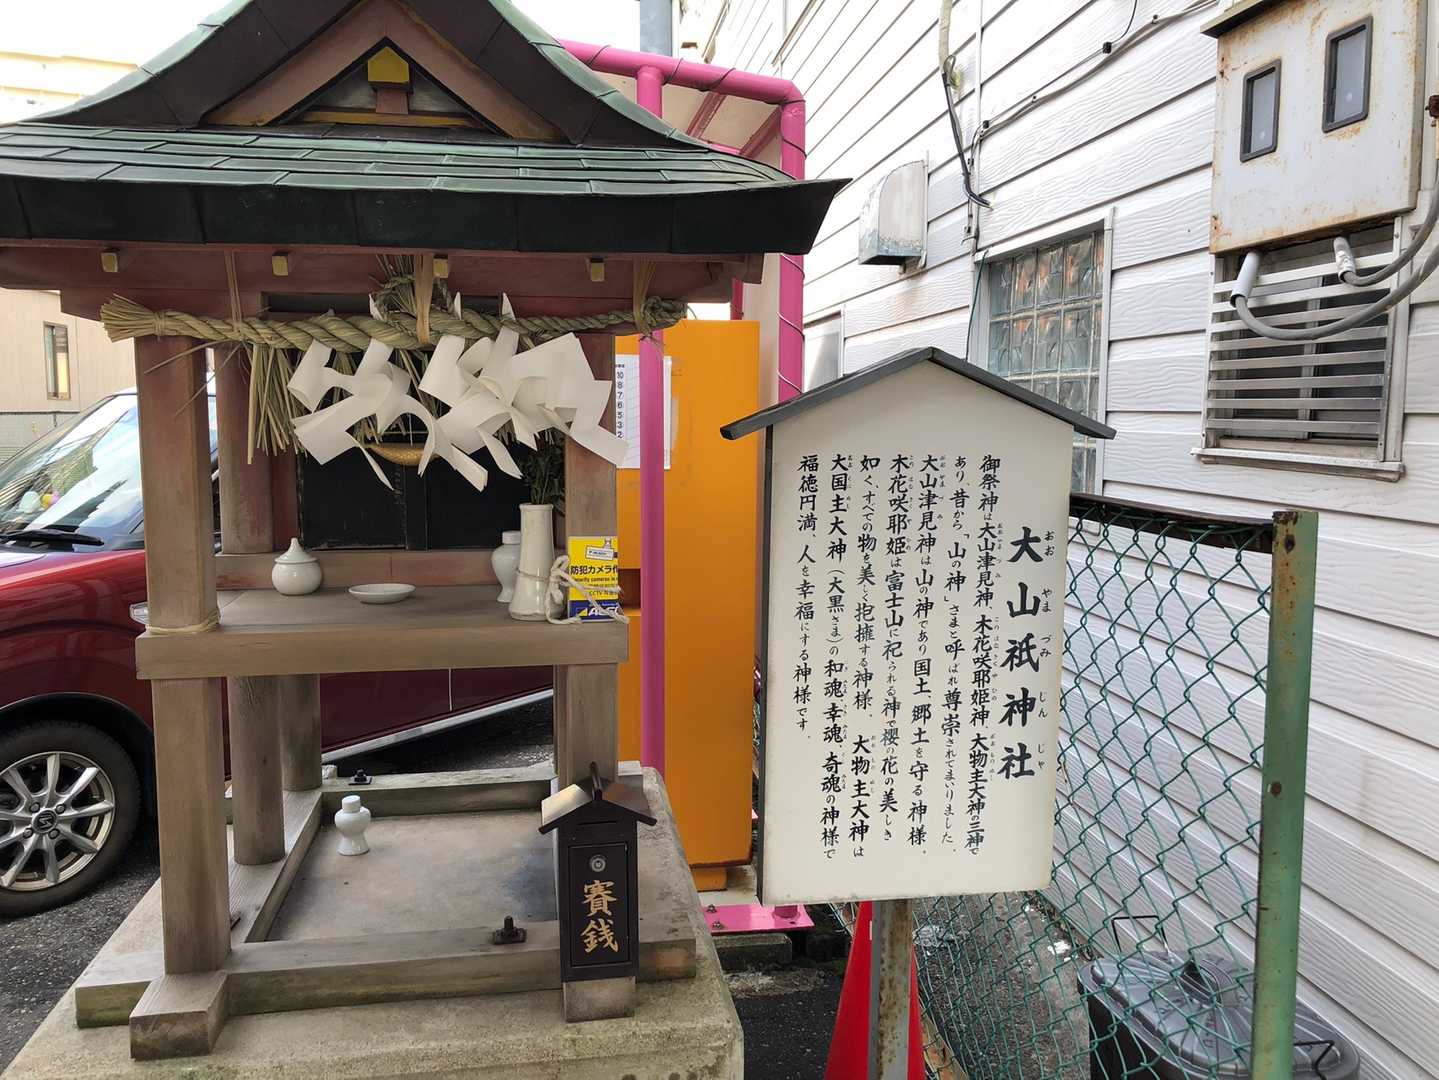 大山祇神社
おおやまづみじんじゃ
御祭神は大山津見神、木花咲耶姫神、大物主大神の三神で
あり、昔から「山の神」さまと呼ばれ尊崇されてまいりました。
大山津見神は山の神であり国土、郷土を守る神様。
木花咲耶姫は富士山に祀られる神で櫻の花の美しき
如く、すべての物を美しく抱擁する神様、大物主大神は
大国主大神（大黒さま）の和魂、幸魂、奇魂の神様で
福徳円満、人を幸福にする神様です。
賽銭
防犯カメラ作
curity cameras in
CCTV
10
8
7
6
5
3
2